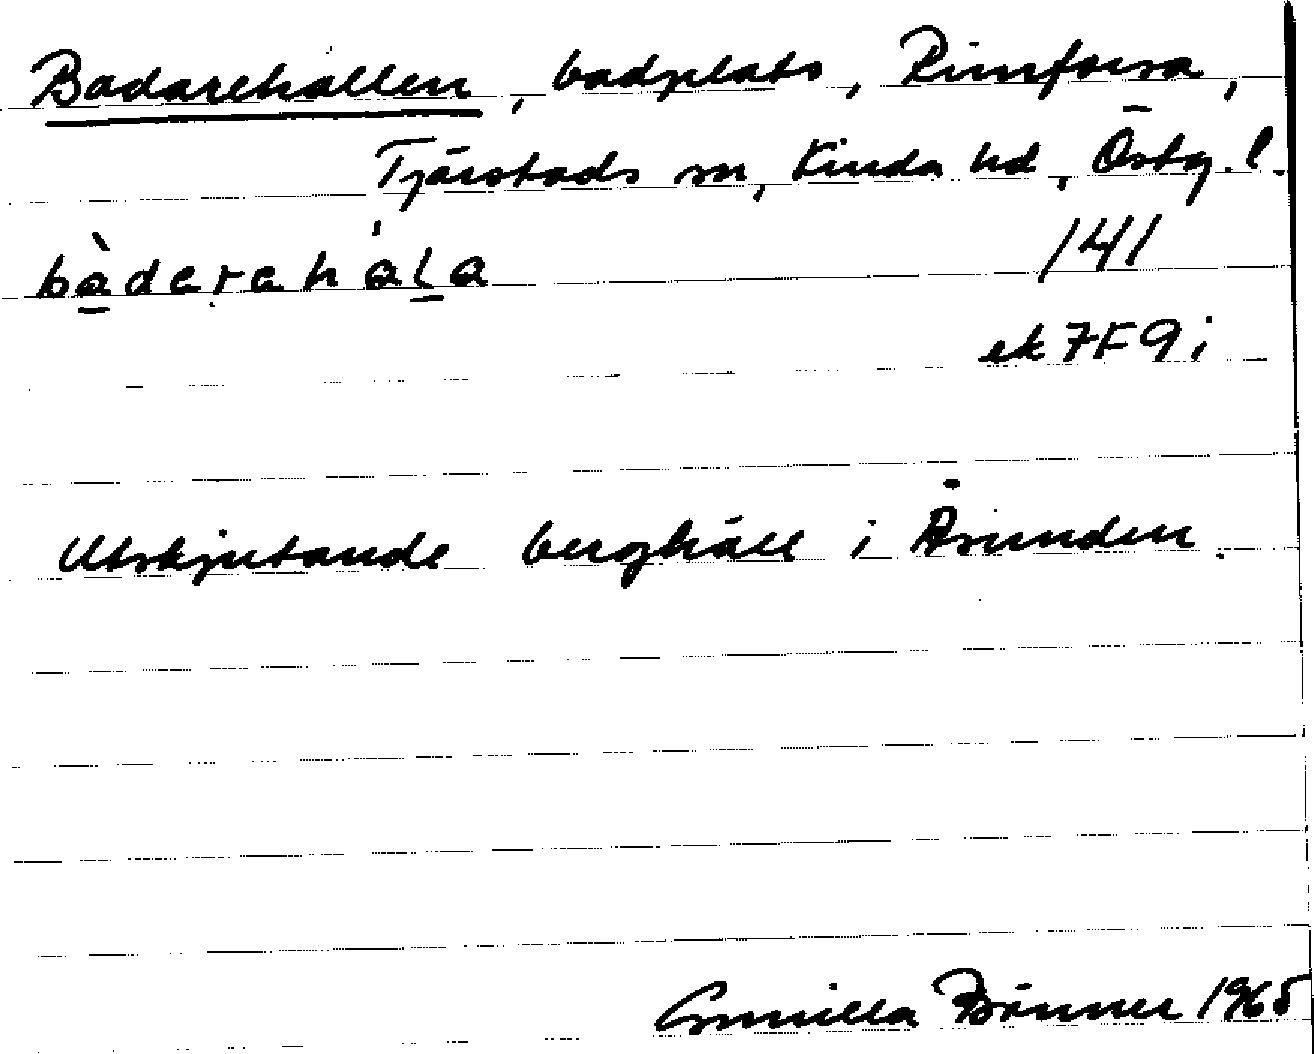 Badarehällen, badplats, Rimforsa,
Tjärstads sn, Kinda hd, Östg. l.
bàdarehála
141
ek 7F9i
Utskjutande berghäll i Åsunden.
Gunilla Bränner 1965